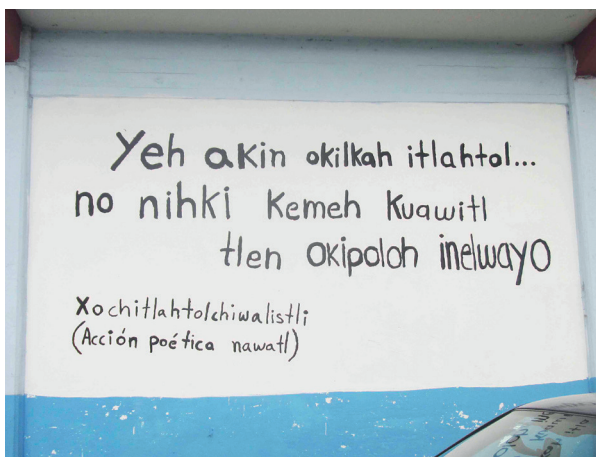 Yeh akin okilkah itlahtol...
no nihki kemeh kuawitl
tlen okipoloh inelwayo
Xochitlahtolchiwalistli
(Acción poética nawatl)